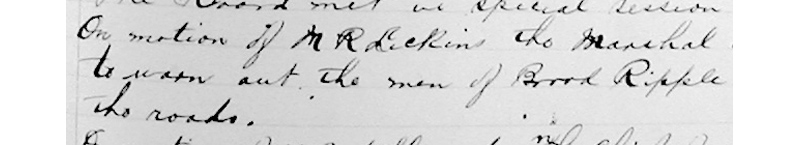 The Board met in special session
On motion of M R Dickins the Marshal
to warn out the men of Brood Ripple
the roads.